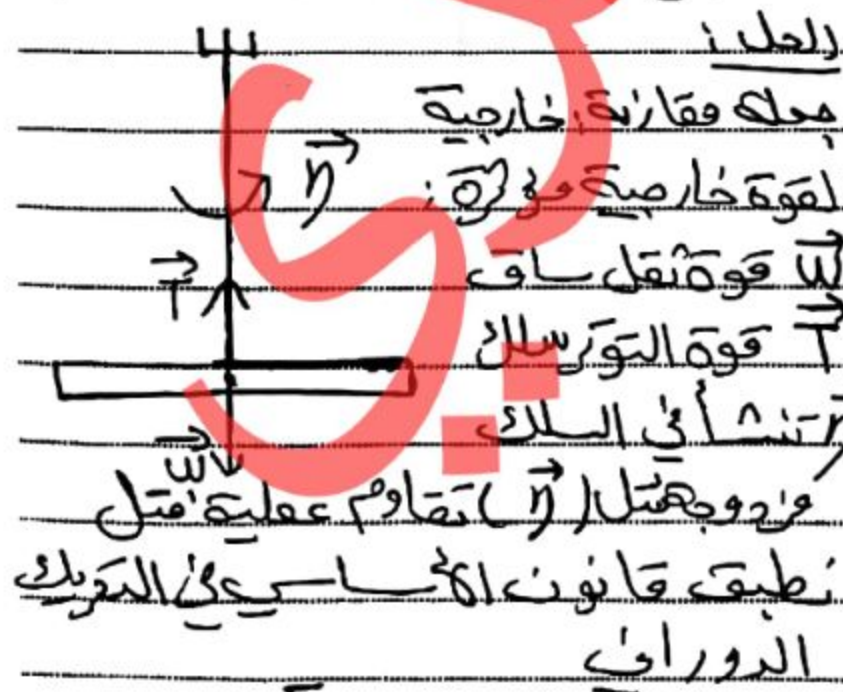 الحل:
جملة مقارنة: خارجية
لقوة خارجية مؤثرة:
W قوة ثقل ساق
T قوة التوتر سلك
η تنشأ في السلك
مزدوجة فتل (η) تقاوم عملية فتل
نطبق قانون الأساسي في التحريك
الدوراني
η
T
W